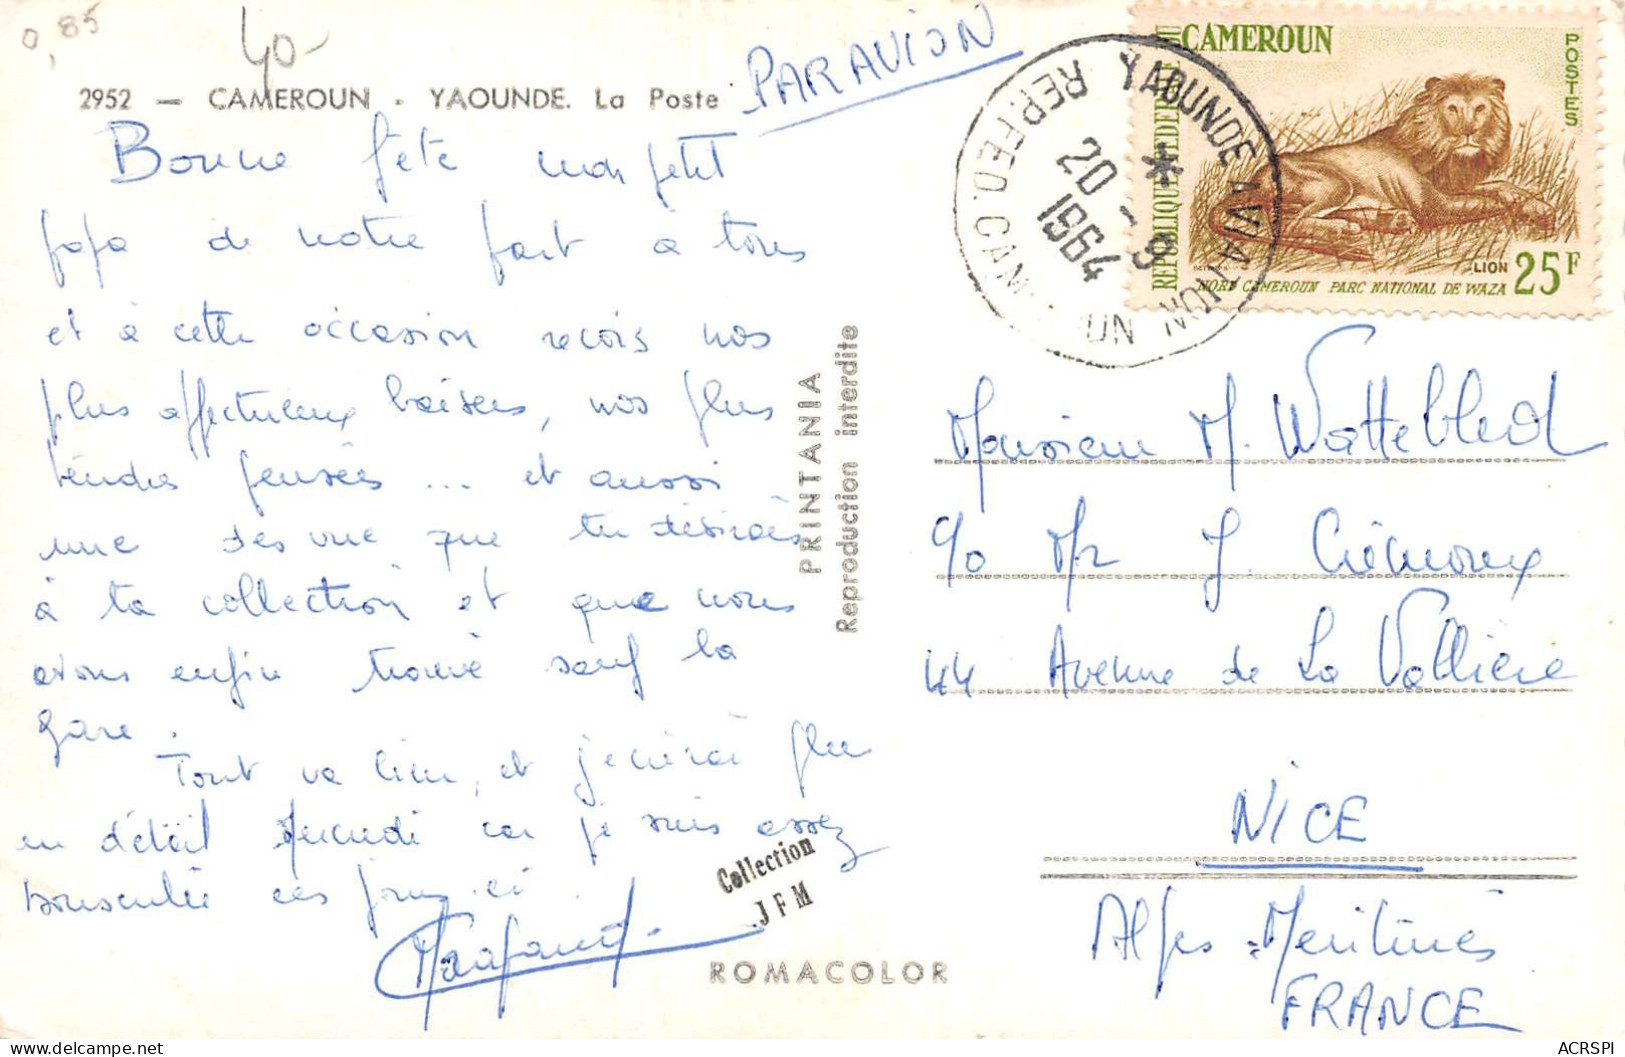 0,85
40-
2952 — CAMEROUN - YAOUNDE. La Poste
PAR AVION
Bonne fête mon petit
papa de notre part à tous
et à cette occasion reçois nos
plus affectueux baisers, nos plus
tendres pensées ... et aussi
une des vue que tu désirais
à ta collection et que nous
avons enfin trouvé sauf la
gare.
Tout va bien, et j'écrirai plus
en détail car je suis assez
bousculée ces jours-ci
Collection
JFM
ROMACOLOR
PRINTANIA
Reproduction interdite
YAOUNDE AVIATION
REP. FED. CAMEROUN
20 - 9
1964
REPUBLIQUE FEDERALE DU
CAMEROUN
POSTES
LION 25F
NORD CAMEROUN PARC NATIONAL DE WAZA
Monsieur M. Wattebled
c/o Mr J. Crémoux
44 Avenue de La Vallière
NICE
Alpes-Maritimes
FRANCE
ACRSPI